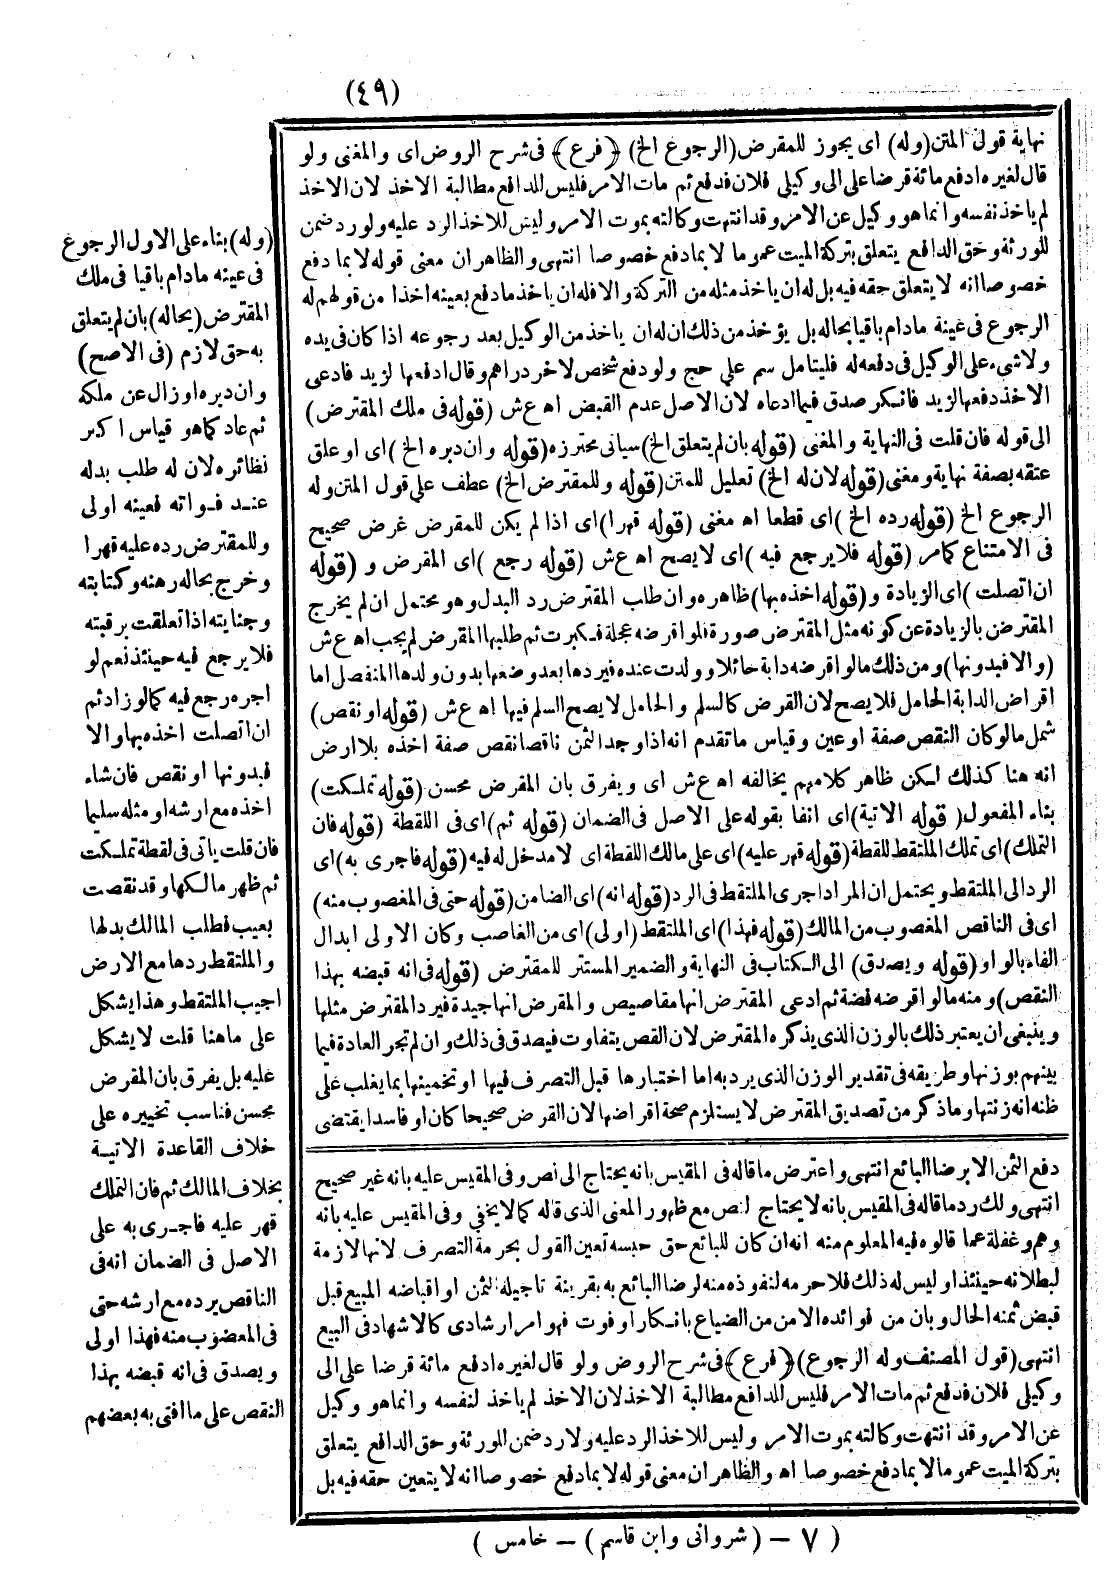 (٤٩)
نهاية قول المتن (وله) اى يجوز للمقرض (الرجوع الخ) ﴿ فرع ﴾ فى شرح الروض اى والمغنى ولو
قال لغيره ادفع مائة قرضا على الى وكيلى فلان فدفع ثم مات الامر فليس للدافع مطالبة الاخذ لان الاخذ
لم ياخذ نفسه وانما هو وكيل عن الامر وقد انتهت وكالته بموت الامر وليس للاخذ الرد عليه ولو رد ضمن
للورثة وحق الدافع يتعلق بتركة الميت عموما لا بما دفع خصوصا انتهى والظاهر ان معنى قوله لا بما دفع
خصوصا انه لا يتعلق حقه فيه بل له ان ياخذ مثله من التركة والا فله ان ياخذ ما دفع بعينه اخذا من قولهم له
الرجوع فى عينة مادام باقيا بحاله بل يؤخذ من ذلك ان له ان ياخذ من الوكيل بعد رجوعه اذا كان فى يده
ولا شىء على الوكيل فى دفعه له فليتامل سم على حج ولو دفع شخص لاخر دراهم وقال ادفعها لزيد فادعى
الاخذ دفعها لزيد فانكر صدق فيما ادعاه لان الاصل عدم القبض اه ع ش (قوله فى ملك المقترض)
الى قوله فان قلت فى النهاية والمغنى (قوله بان لم يتعلق الخ) سياتى محترزه (قوله وان دبره الخ ) اى او علق
عتقه بصفة نهاية ومغنى (قوله لان له الخ) تعليل للمتن (قوله وللمقترض الخ) عطف على قول المتن وله
الرجوع الخ (قوله رده الخ ) اى قطعا اه مغنى (قوله قهرا) اى اذا لم يكن للمقرض غرض صحيح
فى الامتناع كمامر (قوله فلا يرجع فيه ) اى لا يصح اه ع ش (قوله رجع ) اى المقرض و (قوله
ان اتصلت ) اى الزيادة و (قوله اخذه بها) ظاهره وان طلب المقترض رد البدل وهو محتمل ان لم يخرج
المقترض بالزيادة عن كونه مثل المقترض صورة فلو اقرضه عجلة فكبرت ثم طلبها المقرض لم يجب اه ع ش
(والا فبدونها) ومن ذلك ما لو اقرضه دابة حائلا وولدت عنده فيردها بعد وضعها بدون ولدها المنفصل اما
اقراض الدابة الحامل فلا يصح لان القرض كالسلم والحامل لا يصح السلم فيها اه ع ش (قوله او نقص)
شمل مالو كان النقص صفة او عين وقياس ما تقدم انه اذا وجد الثمن ناقصا نقص صفة اخذه بلا ارش
انه هنا كذلك لكن ظاهر كلامهم يخالفه اه ع ش اى ويفرق بان المقرض محسن (قوله تملكت)
بناء المفعول ( قوله الاتية) اى انفا بقوله على الاصل فى الضمان (قوله ثم) اى فى اللقطة (قوله فان
التملك) اى تملك الملتقط للقطة (قوله قهر عليه) اى على مالك اللقطة اى لا مدخل له فيه (قوله فاجرى به) اى
الرد الى الملتقط ويحتمل ان المراد اجرى الملتقط فى الرد (قوله انه) اى الضامن (قوله حتى فى المغصوب منه)
اى فى الناقص المغصوب من المالك (قوله فهذا) اى الملتقط (اولى) اى من الغاصب وكان الاولى ابدال
الفاء بالواو (قوله ويصدق) الى الكتاب فى النهاية والضمير المستتر للمقترض (قوله فى انه قبضه بهذا
النقص) ومنه مالو اقرضه فضة ثم ادعى المقترض انها مقاصيص والمقرض انها جيدة فيرد المقترض مثلها
وينبغى ان يعتبر ذلك بالوزن الذى يذكره المقترض لان القص يتفاوت فيصدق فى ذلك وان لم تجر العادة فيما
بينهم بوزنها وطريقه فى تقدير الوزن الذى يرد به اما اختبارها قبل التصرف فيها او تخمينها بما يغلب على
ظنه انه زنتها وما ذكر من تصديق المقترض لا يستلزم صحة اقراضها لان القرض صحيحا كان او فاسدا يقتضى
(وله) بناء على الاول الرجوع
فى عينه مادام باقيا فى ملك
المقترض (بحاله) بان لم يتعلق
به حق لازم (فى الاصح)
وان دبره او زال عن ملكه
ثم عاد كما هو قياس اكثر
نظائره لان له طلب بدله
عند فواته فعينه اولى
وللمقترض رده عليه قهرا
وخرج بحاله رهنه وكتابته
وجنايته اذا تعلقت برقبته
فلا يرجع فيه حينئذ نعم لو
اجره رجع فيه كما لو زاد ثم
ان اتصلت اخذه بها والا
فبدونها او نقص فان شاء
اخذه مع ارشه او مثله سليما
فان قلت ياتى فى لقطة تملكت
ثم ظهر مالكها وقد نقصت
بعيب فطلب المالك بدلها
والملتقط ردها مع الارض
اجيب الملتقط وهذا يشكل
على ماهنا قلت لا يشكل
عليه بل يفرق بان المقرض
محسن فناسب تخييره على
خلاف القاعدة الاتية
بخلاف المالك ثم فان التملك
قهر عليه فاجرى به على
الاصل فى الضمان انه فى
الناقص يرده مع ارشه حتى
فى المغصوب منه فهذا اولى
ويصدق فى انه قبضه بهذا
النقص على ما افتى به بعضهم
دفع الثمن الا برضا البائع انتهى واعترض ما قاله فى المقيس بانه يحتاج الى نص وفى المقيس عليه بانه غير صحيح
انتهى ولك رد ما قاله فى المقيس بانه لا يحتاج لنص مع ظهور المعنى الذى قاله كما لا يخفى وفى المقيس عليه بانه
وهم وغفلة عما قالوه فيه المعلوم منه انه ان كان للبائع حق حبسه تعين القول بحرمة التصرف لانها لازمة
لبطلانه حينئذ او ليس له ذلك فلا حرمه لنفوذه منه لرضا البائع به بقرينة تاجيله الثمن او اقباضه المبيع قبل
قبض ثمنه الحال وبان من فوائده الامن من الضياع بانكار او فوت فهو امر ارشادى كالاشهاد فى البيع
انتهى (قول المصنف وله الرجوع) ﴿ فرع ﴾ فى شرح الروض ولو قال لغيره ادفع مائة قرضا على الى
وكيلى فلان فدفع ثم مات الامر فليس للدافع مطالبة الاخذ لان الاخذ لم ياخذ لنفسه وانما هو وكيل
عن الامر وقد انتهت وكالته بموت الامر وليس للاخذ الرد عليه ولا رد ضمن الورثة وحق الدافع يتعلق
بتركة الميت عموما لا بما دفع خصوصا اه والظاهر ان معنى قوله لا بما دفع خصوصا انه لا يتعين حقه فيه بل
( ٧ – ( شروانى وابن قاسم ) – خامس )